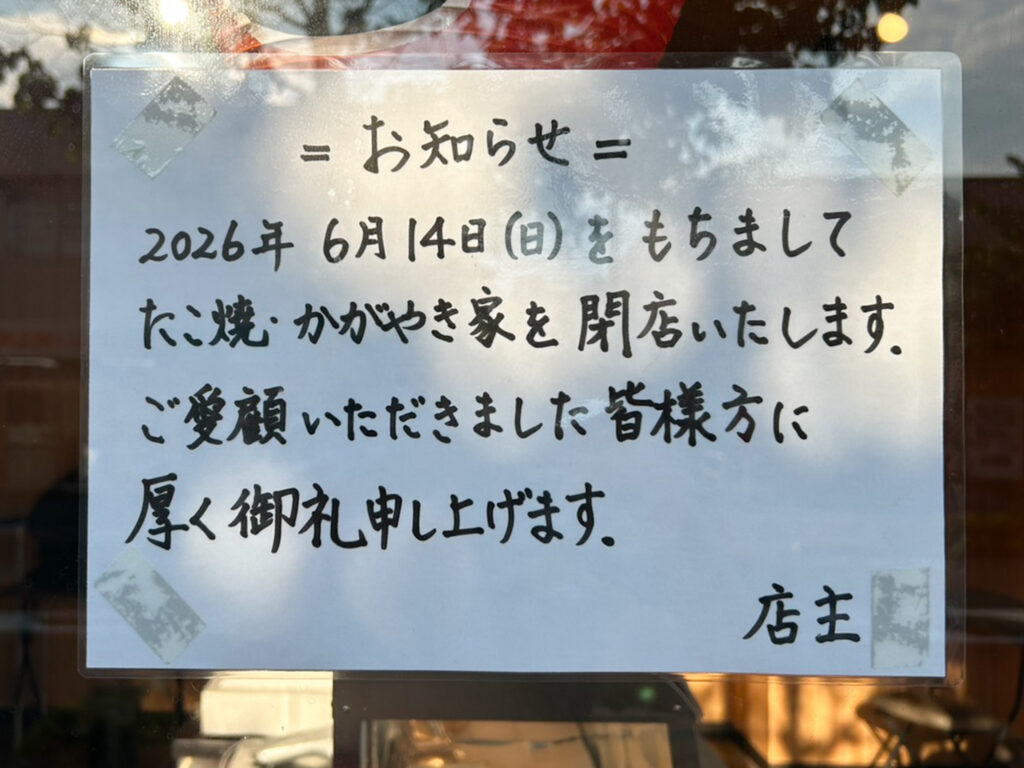 = お知らせ =
2026年 6月14日(日)をもちまして
たこ焼・かがやき家を閉店いたします.
ご愛顧いただきました皆様方に
厚く御礼申し上げます.
店主